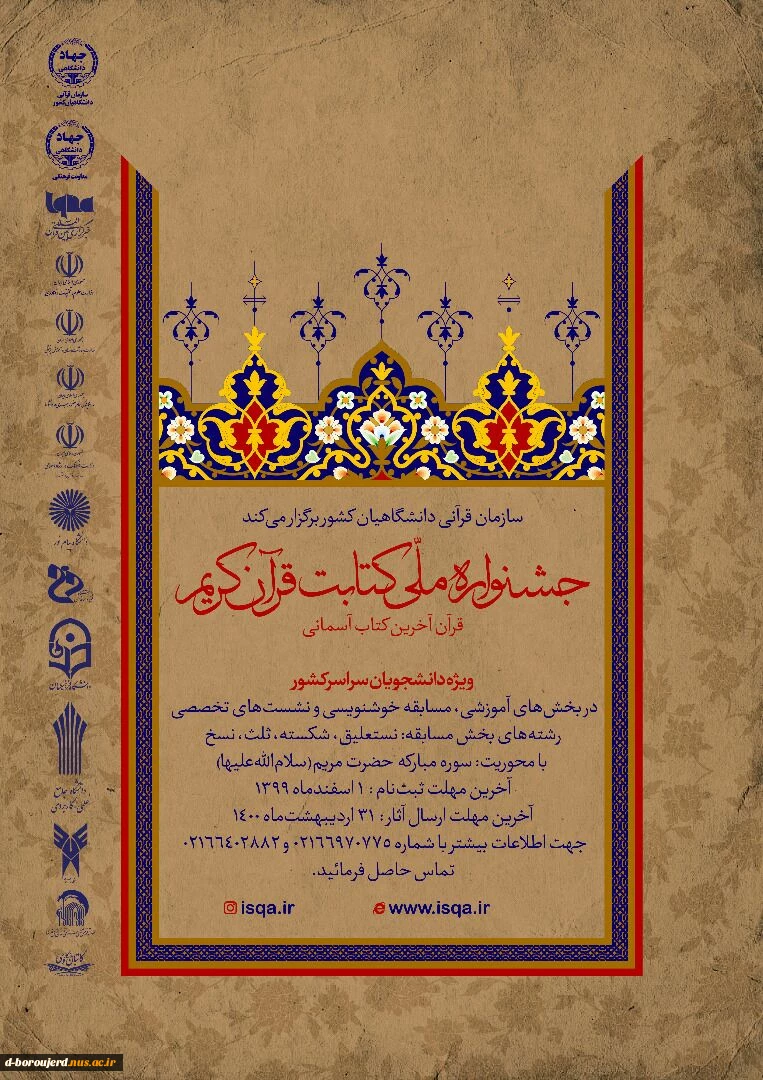 سازمان قرآنی دانشگاهیان کشور برگزار می‌کند
جشنواره ملّی کتابت قرآن کریم
قرآن آخرین کتاب آسمانی
ویژه دانشجویان سراسر کشور
در بخش‌های آموزشی، مسابقه خوشنویسی و نشست‌های تخصصی
رشته‌های بخش مسابقه: نستعلیق، شکسته، ثلث، نسخ
با محوریت: سوره مبارکه حضرت مریم (سلام‌الله‌علیها)
آخرین مهلت ثبت‌نام: ۱ اسفندماه ۱۳۹۹
آخرین مهلت ارسال آثار: ۳۱ اردیبهشت‌ماه ۱۴۰۰
جهت اطلاعات بیشتر با شماره ۰۲۱۶۶۹۷۰۷۷۵ و ۰۲۱۶۶۴۰۲۸۸۲
تماس حاصل فرمائید.
isqa.ir
www.isqa.ir
جهاد
دانشگاهی
سازمان قرآنی
دانشگاهیان کشور
جهاد
دانشگاهی
معاونت فرهنگی
iqna
دانشگاه پیام نور
دانشگاه فرهنگیان
دانشگاه جامع
علمی کاربردی
d-boroujerd.nus.ac.ir